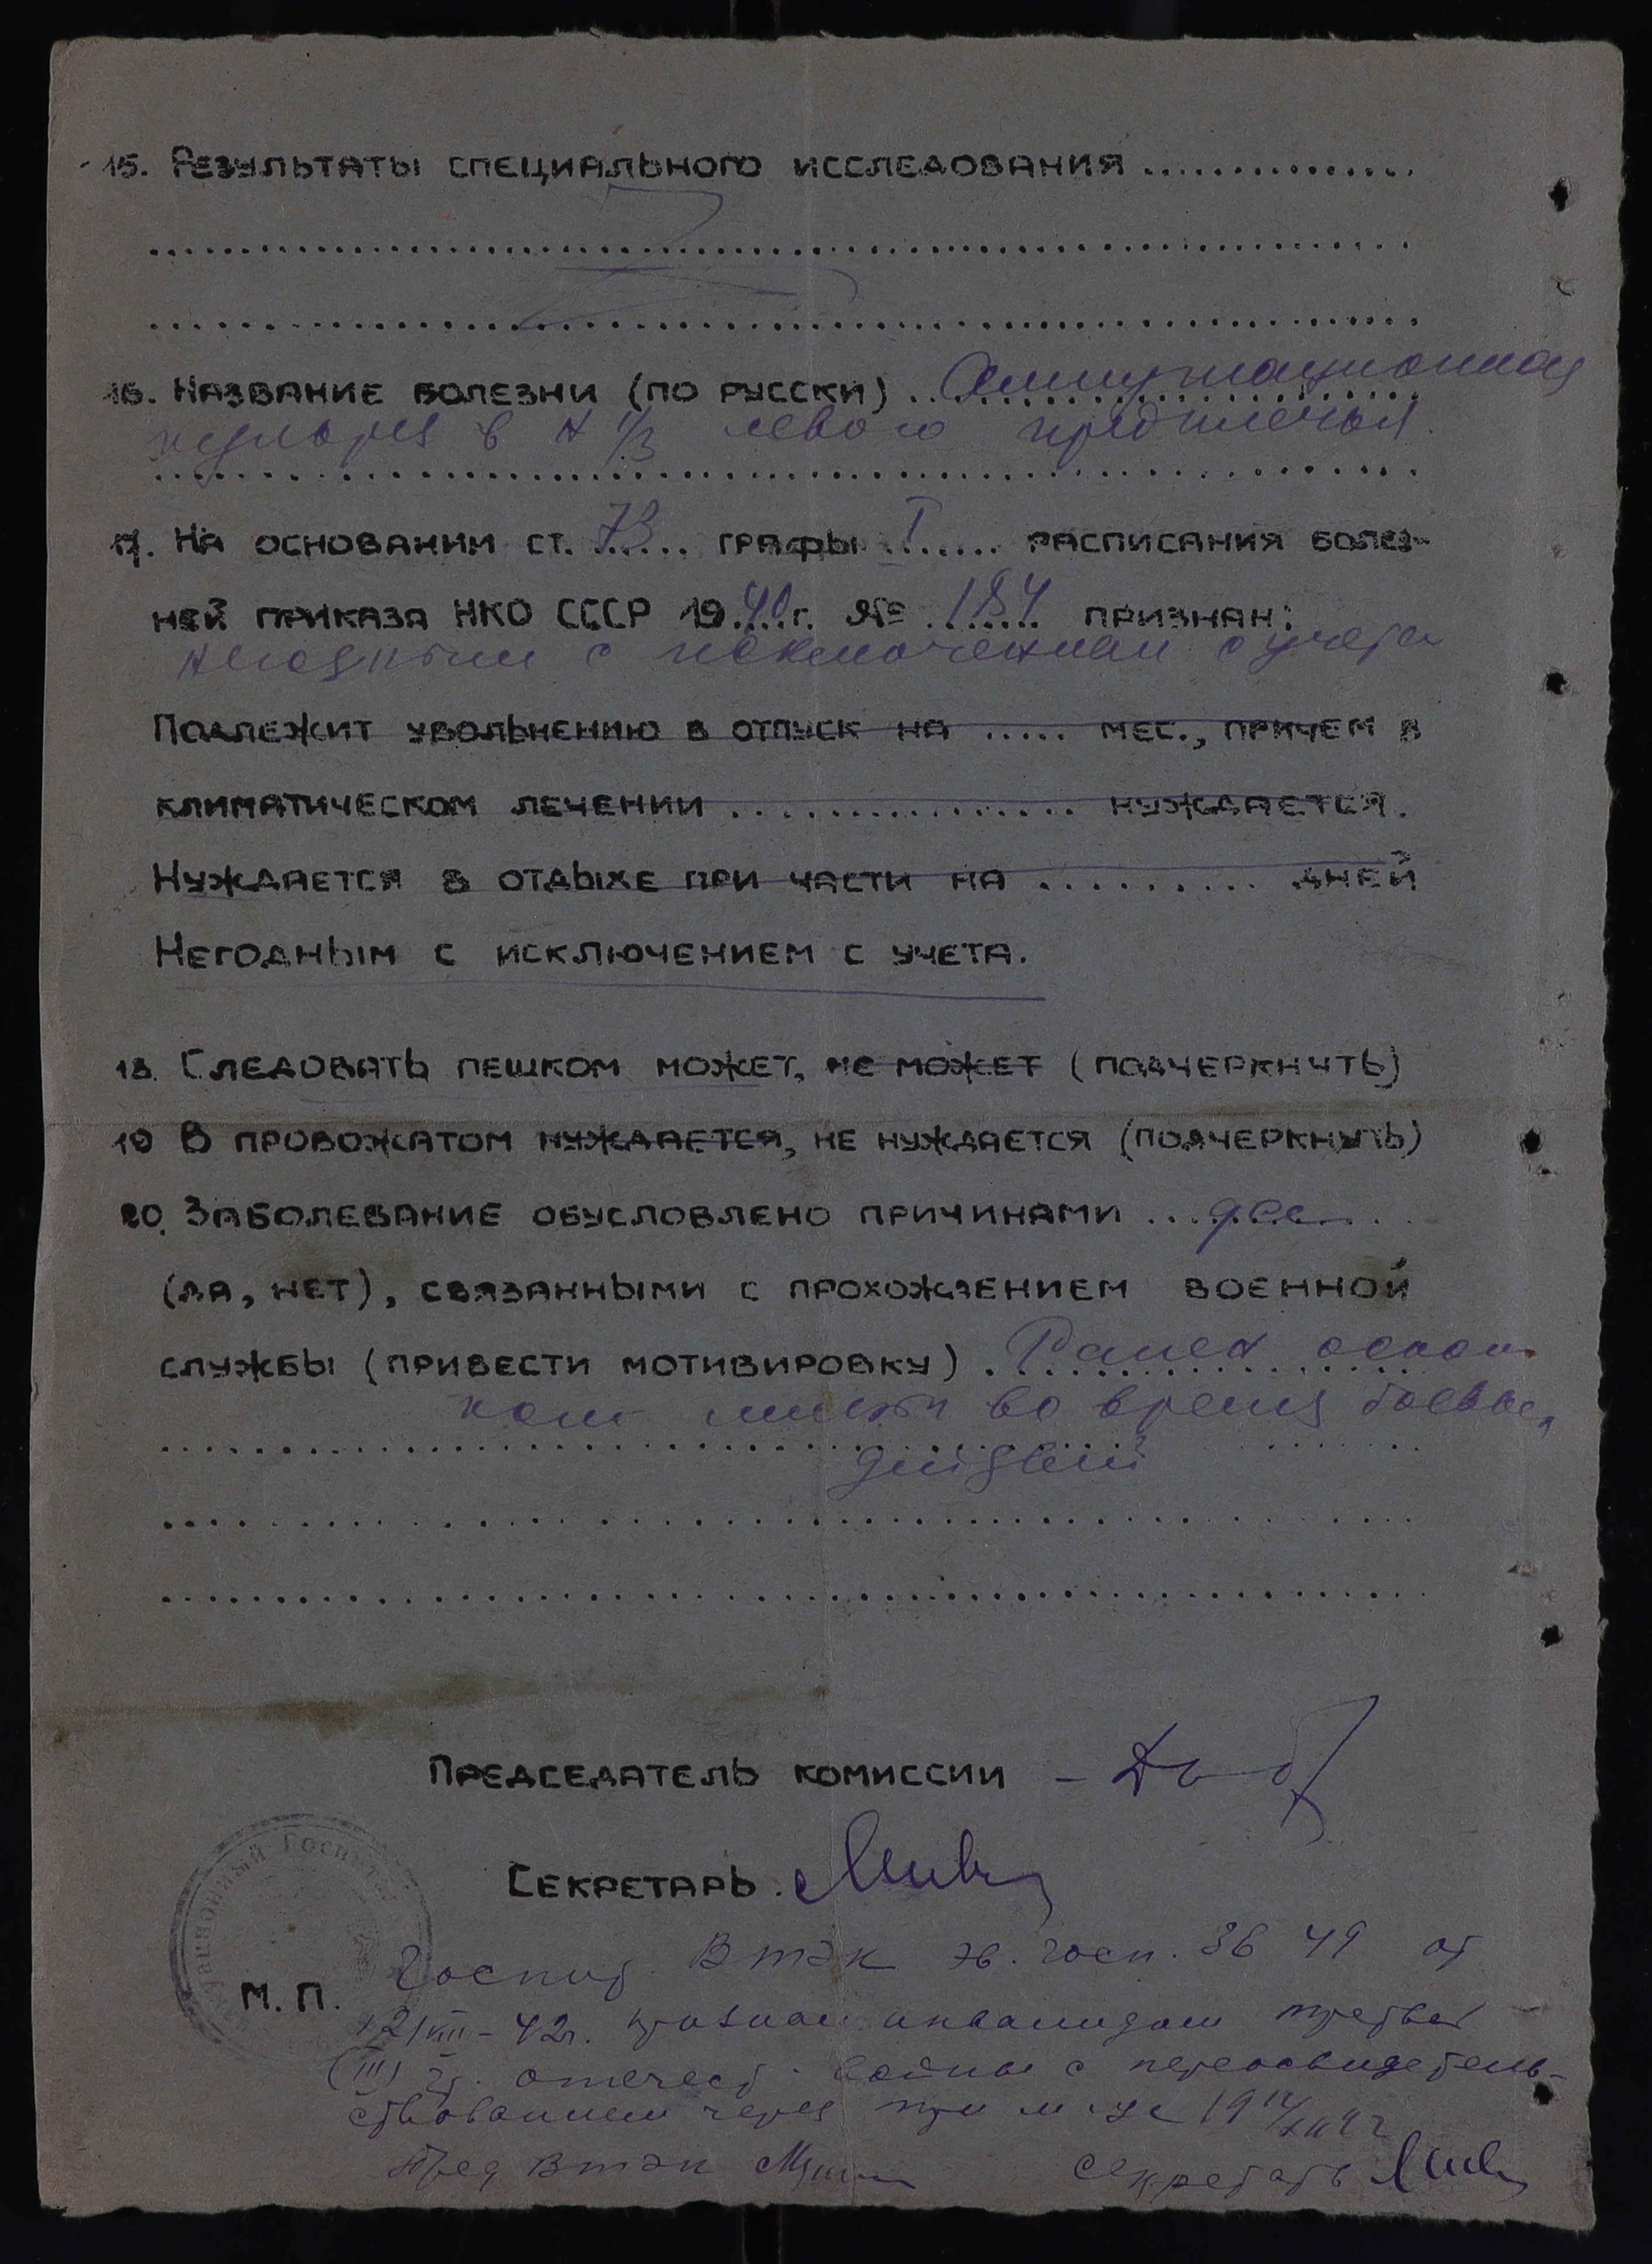 15. Результаты специального исследования ...............
16. Название болезни (по русски) Ампутационная
культя в н 1/3 левого предплечья.
17. На основании ст. 73 графы I расписания болез-
ней приказа НКО СССР 1940 г. № 184 признан:
негодным с исключением с учета
Подлежит увольнению в отпуск на ..... мес., причем в
климатическом лечении ................ нуждается.
Нуждается в отдыхе при части на .......... дней
Негодным с исключением с учета.
18. Следовать пешком может, не может (подчеркнуть)
19 В провожатом нуждается, не нуждается (подчеркнуть)
20. Заболевание обусловлено причинами ... да ...
(да, нет), связанными с прохождением военной
службы (привести мотивировку). Ранен оскол
ком мины во время боевых
действий
Председатель комиссии –
Секретарь.
Эвакуационный Госпиталь
М. П.
Госпит. ВТЭК эв. госп. 3649 от
12/VIII-42г. признан инвалидом третьей
(III) гр. отечест. войны с переосвидетель-
ствованием через три м-ца
Пред ВТЭК
Секретарь